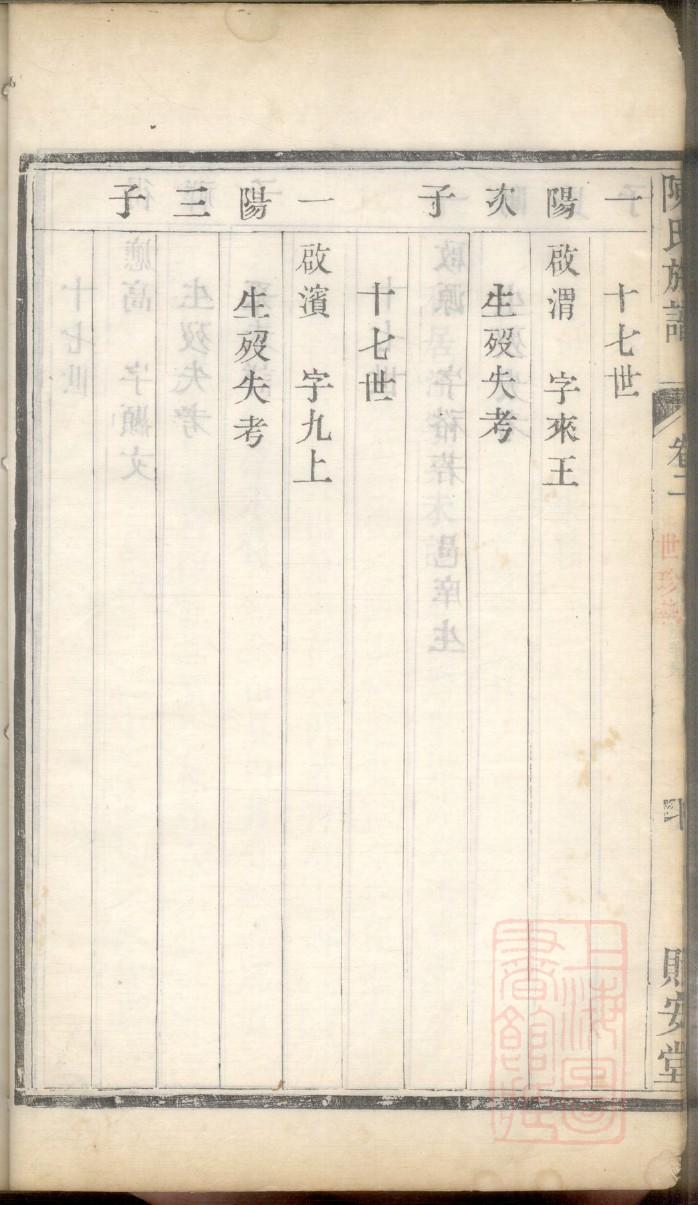 陳氏族譜
卷二
貽安堂
一陽次子
一陽三子
十七世
啟渭 字來王
生歿失考
十七世
啟濱 字九上
生歿失考
上海圖書館藏